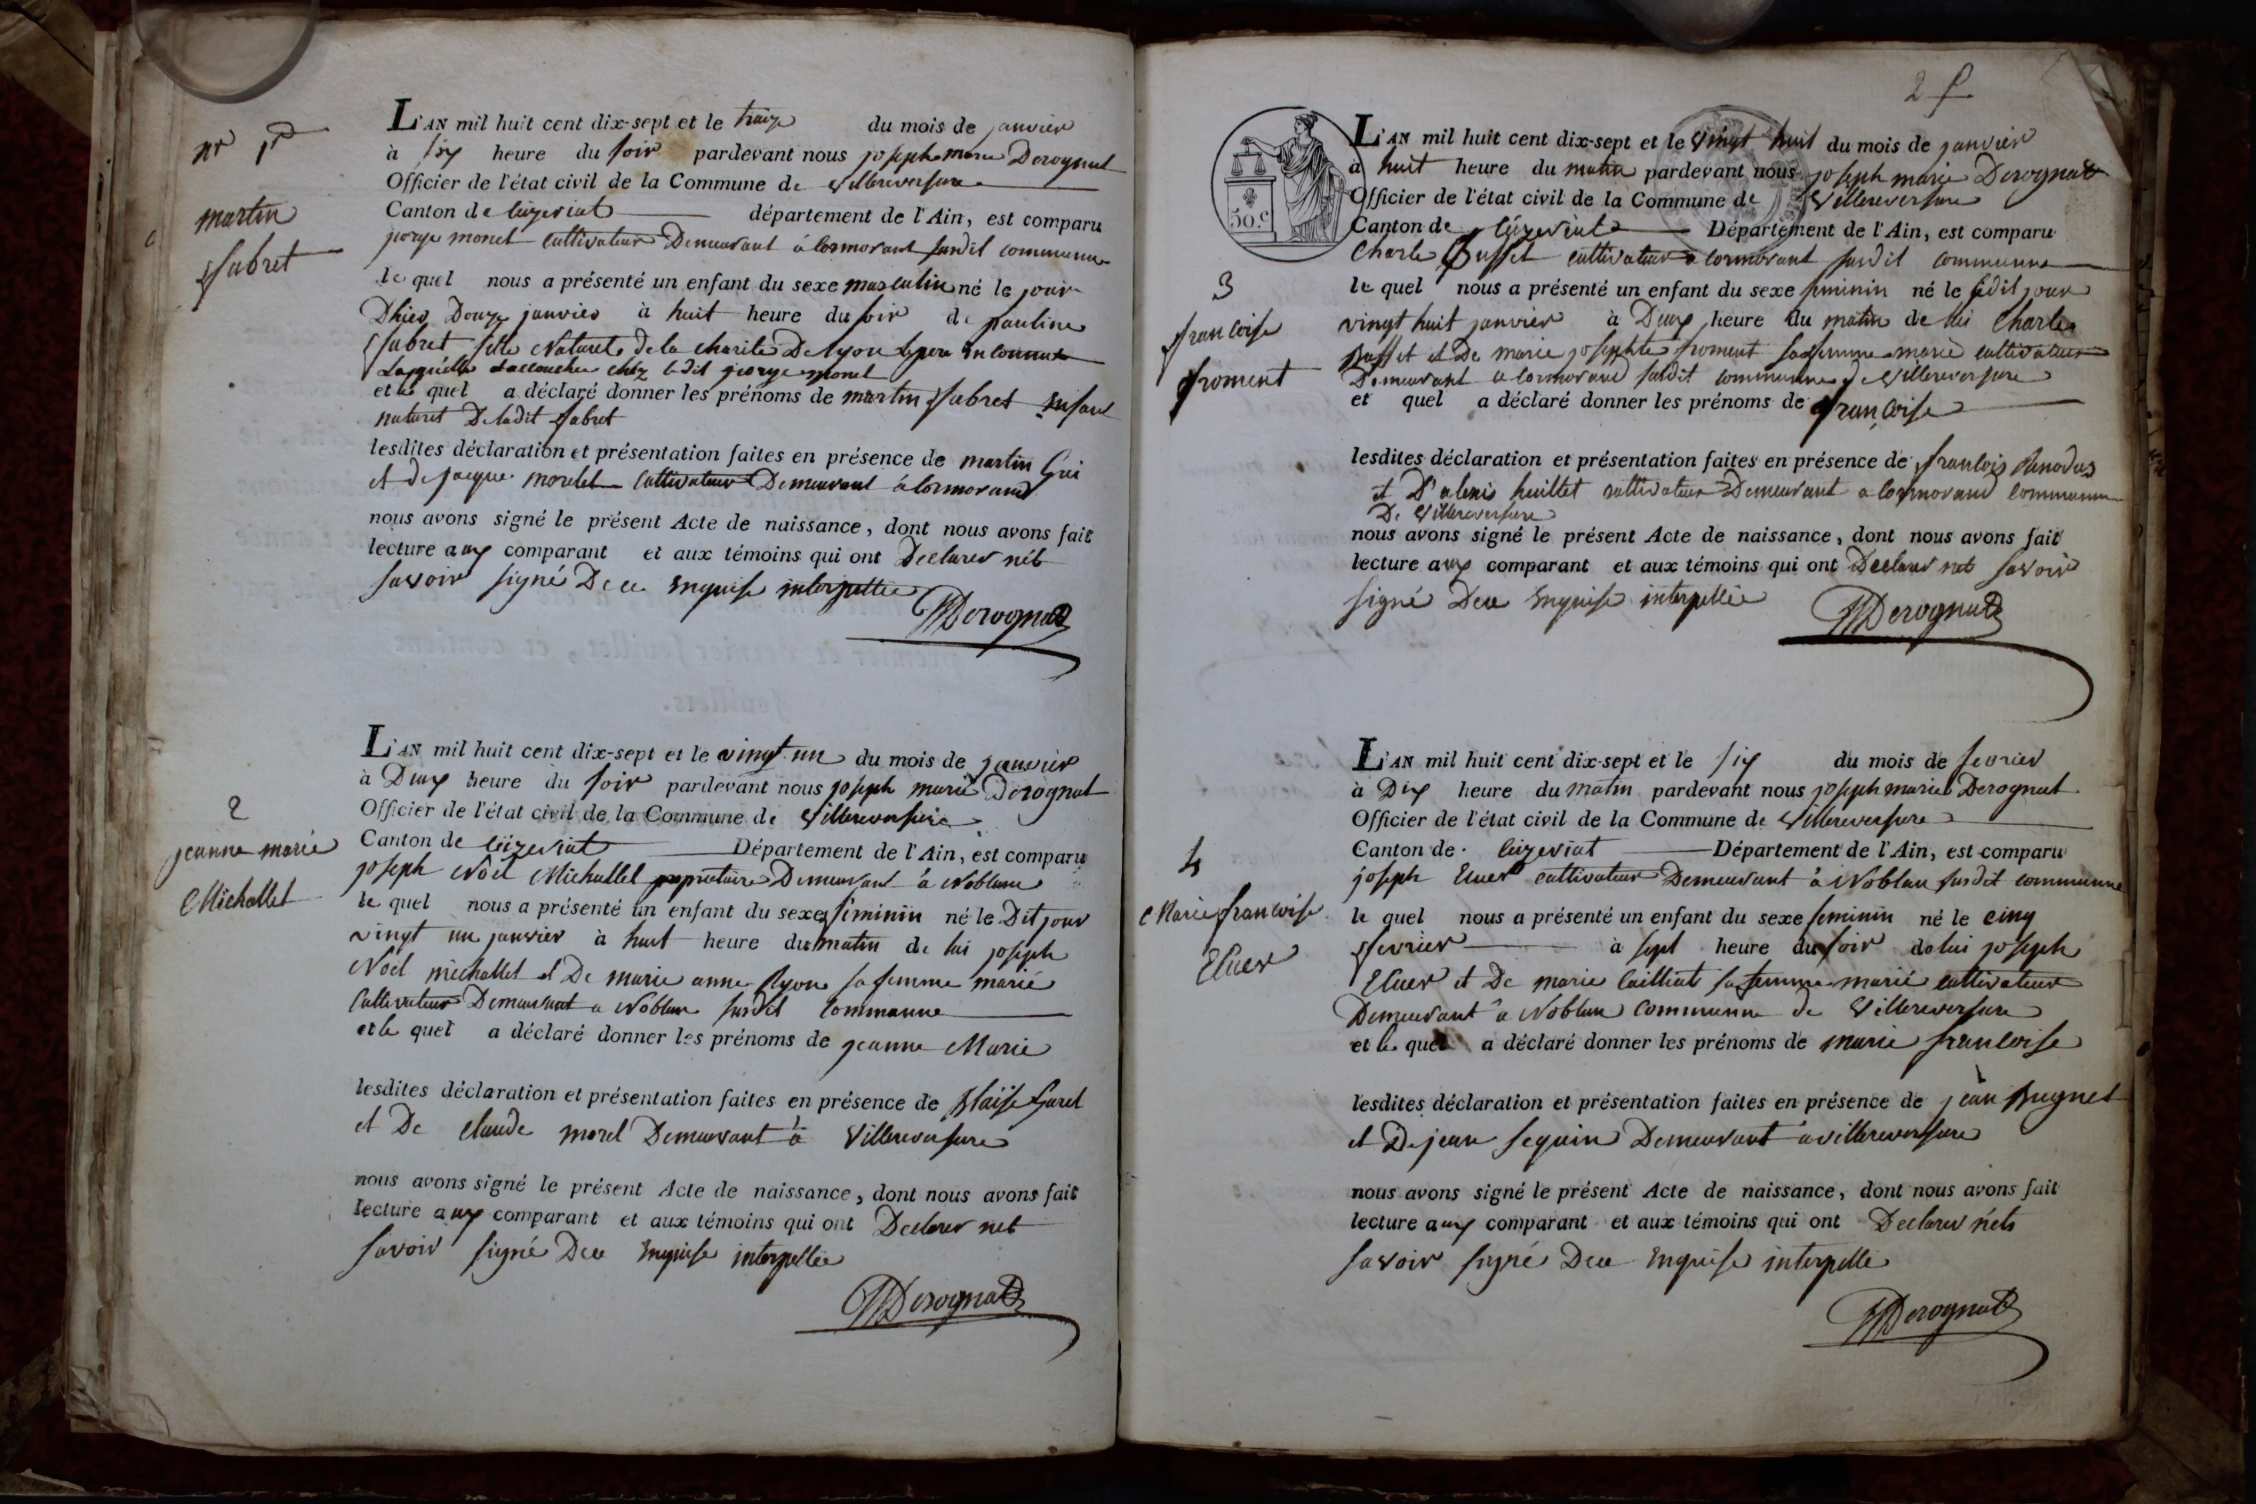 nr 1er
martin
fabret
L'AN mil huit cent dix-sept et le treize du mois de janvier
à six heure du soir pardevant nous joseph marie Derognat
Officier de l'état civil de la Commune de Villereversure
Canton de Ceyzeriat département de l'Ain, est comparu
george monet cultivateur Demeurant à Cormorant susdit commune
le quel nous a présenté un enfant du sexe masculin né le jour
D'hier Douze janvier à huit heure du soir de pauline
fabret fille Naturel de la charité De lyon le pere inconnu
Laquelle accouchée chez ledit george monet
et le quel a déclaré donner les prénoms de martin fabret enfant
naturet De ladit fabret
lesdites déclaration et présentation faites en présence de martin Gui
et de jacque morelet cultivateur Demeurant à Cormorand
nous avons signé le présent Acte de naissance, dont nous avons fait
lecture aux comparant et aux témoins qui ont Declarer nêt
savoir signé De ce enquise interpellée
Derognat
2
jeanne marie
Michallet
L'AN mil huit cent dix-sept et le vingt un du mois de janvier
à Deux heure du soir pardevant nous joseph marie Derognat
Officier de l'état civil de la Commune de Villereversure
Canton de Ceyzeriat Département de l'Ain, est comparu
joseph Noël Michallet propriétaire Demeurant à Noblan
le quel nous a présenté un enfant du sexe féminin né le Dit jour
vingt un janvier à huit heure du matin de lui joseph
Noël michallet et De marie anne Ryon sa femme marié
Cultivateur Demeurant a Noblan susdit commune
et le quel a déclaré donner les prénoms de jeanne Marie
lesdites déclaration et présentation faites en présence de Blaise Garel
et De claude morel Demeurant à Villereversure
nous avons signé le présent Acte de naissance, dont nous avons fait
lecture aux comparant et aux témoins qui ont Declarer net
savoir signé De ce enquise interpellée
Derognat
2 f
50 c
3
francoise
froment
L'AN mil huit cent dix-sept et le vingt huit du mois de janvier
à huit heure du matin pardevant nous joseph marie Derognat
Officier de l'état civil de la Commune de Villereversure
Canton de Ceyzeriat Département de l'Ain, est comparu
Charle Buffet cultivateur a cormorant susdit commune
le quel nous a présenté un enfant du sexe feminin né le sudit jour
vingt huit janvier à Deux heure du matin de lui Charle
Buffet et De marie josephte froment sa femme marié cultivateur
Demeurant a Cormorand susdit commune de Villereversure
et quel a déclaré donner les prénoms de françoise
lesdites déclaration et présentation faites en présence de francois Renodus
et D'alexis huillet cultivateur Demeurant a Cormorand commune
De Villereversure
nous avons signé le présent Acte de naissance, dont nous avons fait
lecture aux comparant et aux témoins qui ont Declarer net savoir
signé De ce enquise interpellée
Derognat
4
Marie francoise
Eluer
L'AN mil huit cent dix-sept et le six du mois de fevrier
à Dix heure du matin pardevant nous joseph marie Derognat
Officier de l'état civil de la Commune de Villereversure
Canton de Ceyzeriat Département de l'Ain, est comparu
joseph Eluer cultivateur Demeurant à Noblan susdit commune
le quel nous a présenté un enfant du sexe feminin né le cinq
fevrier à sept heure du soir de lui joseph
Eluer et De marie Cailliat sa femme marié cultivateur
Demeurant à Noblan commune de Villereversure
et le quel a déclaré donner les prénoms de marie francoise
lesdites déclaration et présentation faites en présence de jean Bugnet
et De jean sequin Demeurant à villereversure
nous avons signé le présent Acte de naissance, dont nous avons fait
lecture aux comparant et aux témoins qui ont Declarer nêts
savoir signé De ce enquise interpelle
Derognat